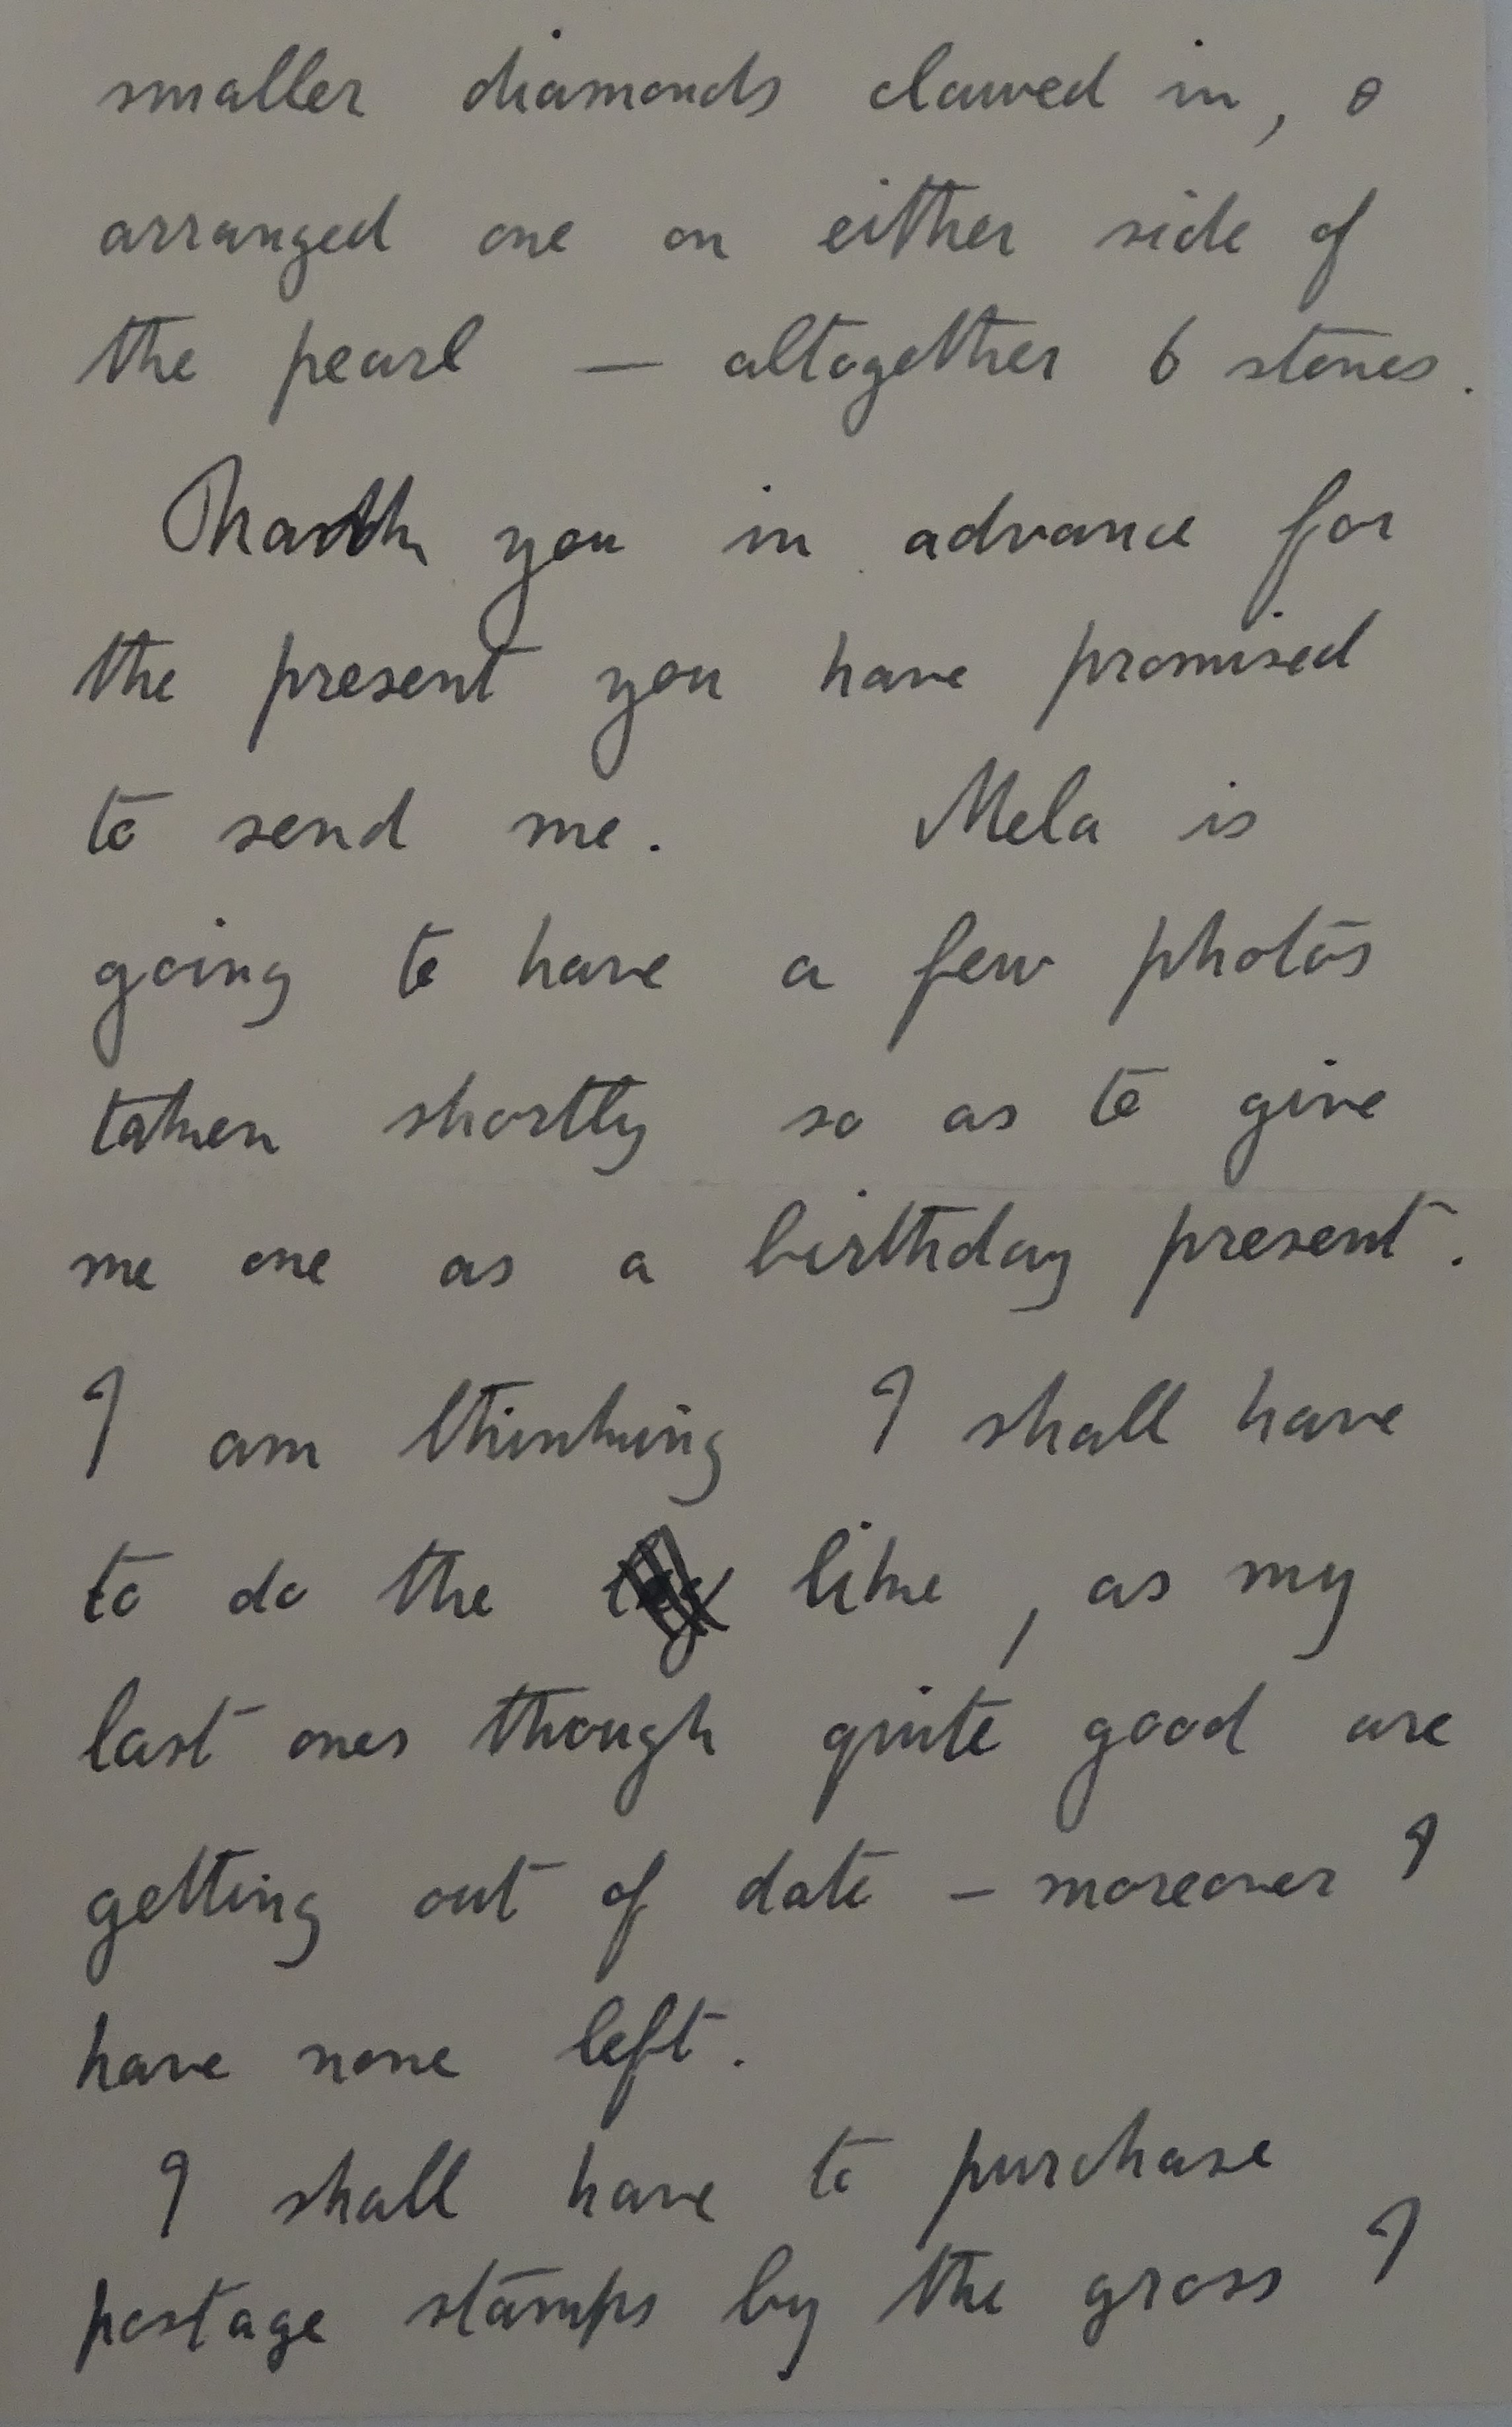 smaller diamonds clawed in, &
arranged one on either side of
the pearl — altogether 6 stones.
Thank you in advance for
the present you have promised
to send me. Mela is
going to have a few photos
taken shortly so as to give
me one as a birthday present.
I am thinking I shall have
to do the like, as my
last ones though quite good are
getting out of date – moreover I
have none left.
I shall have to purchase
postage stamps by the gross I